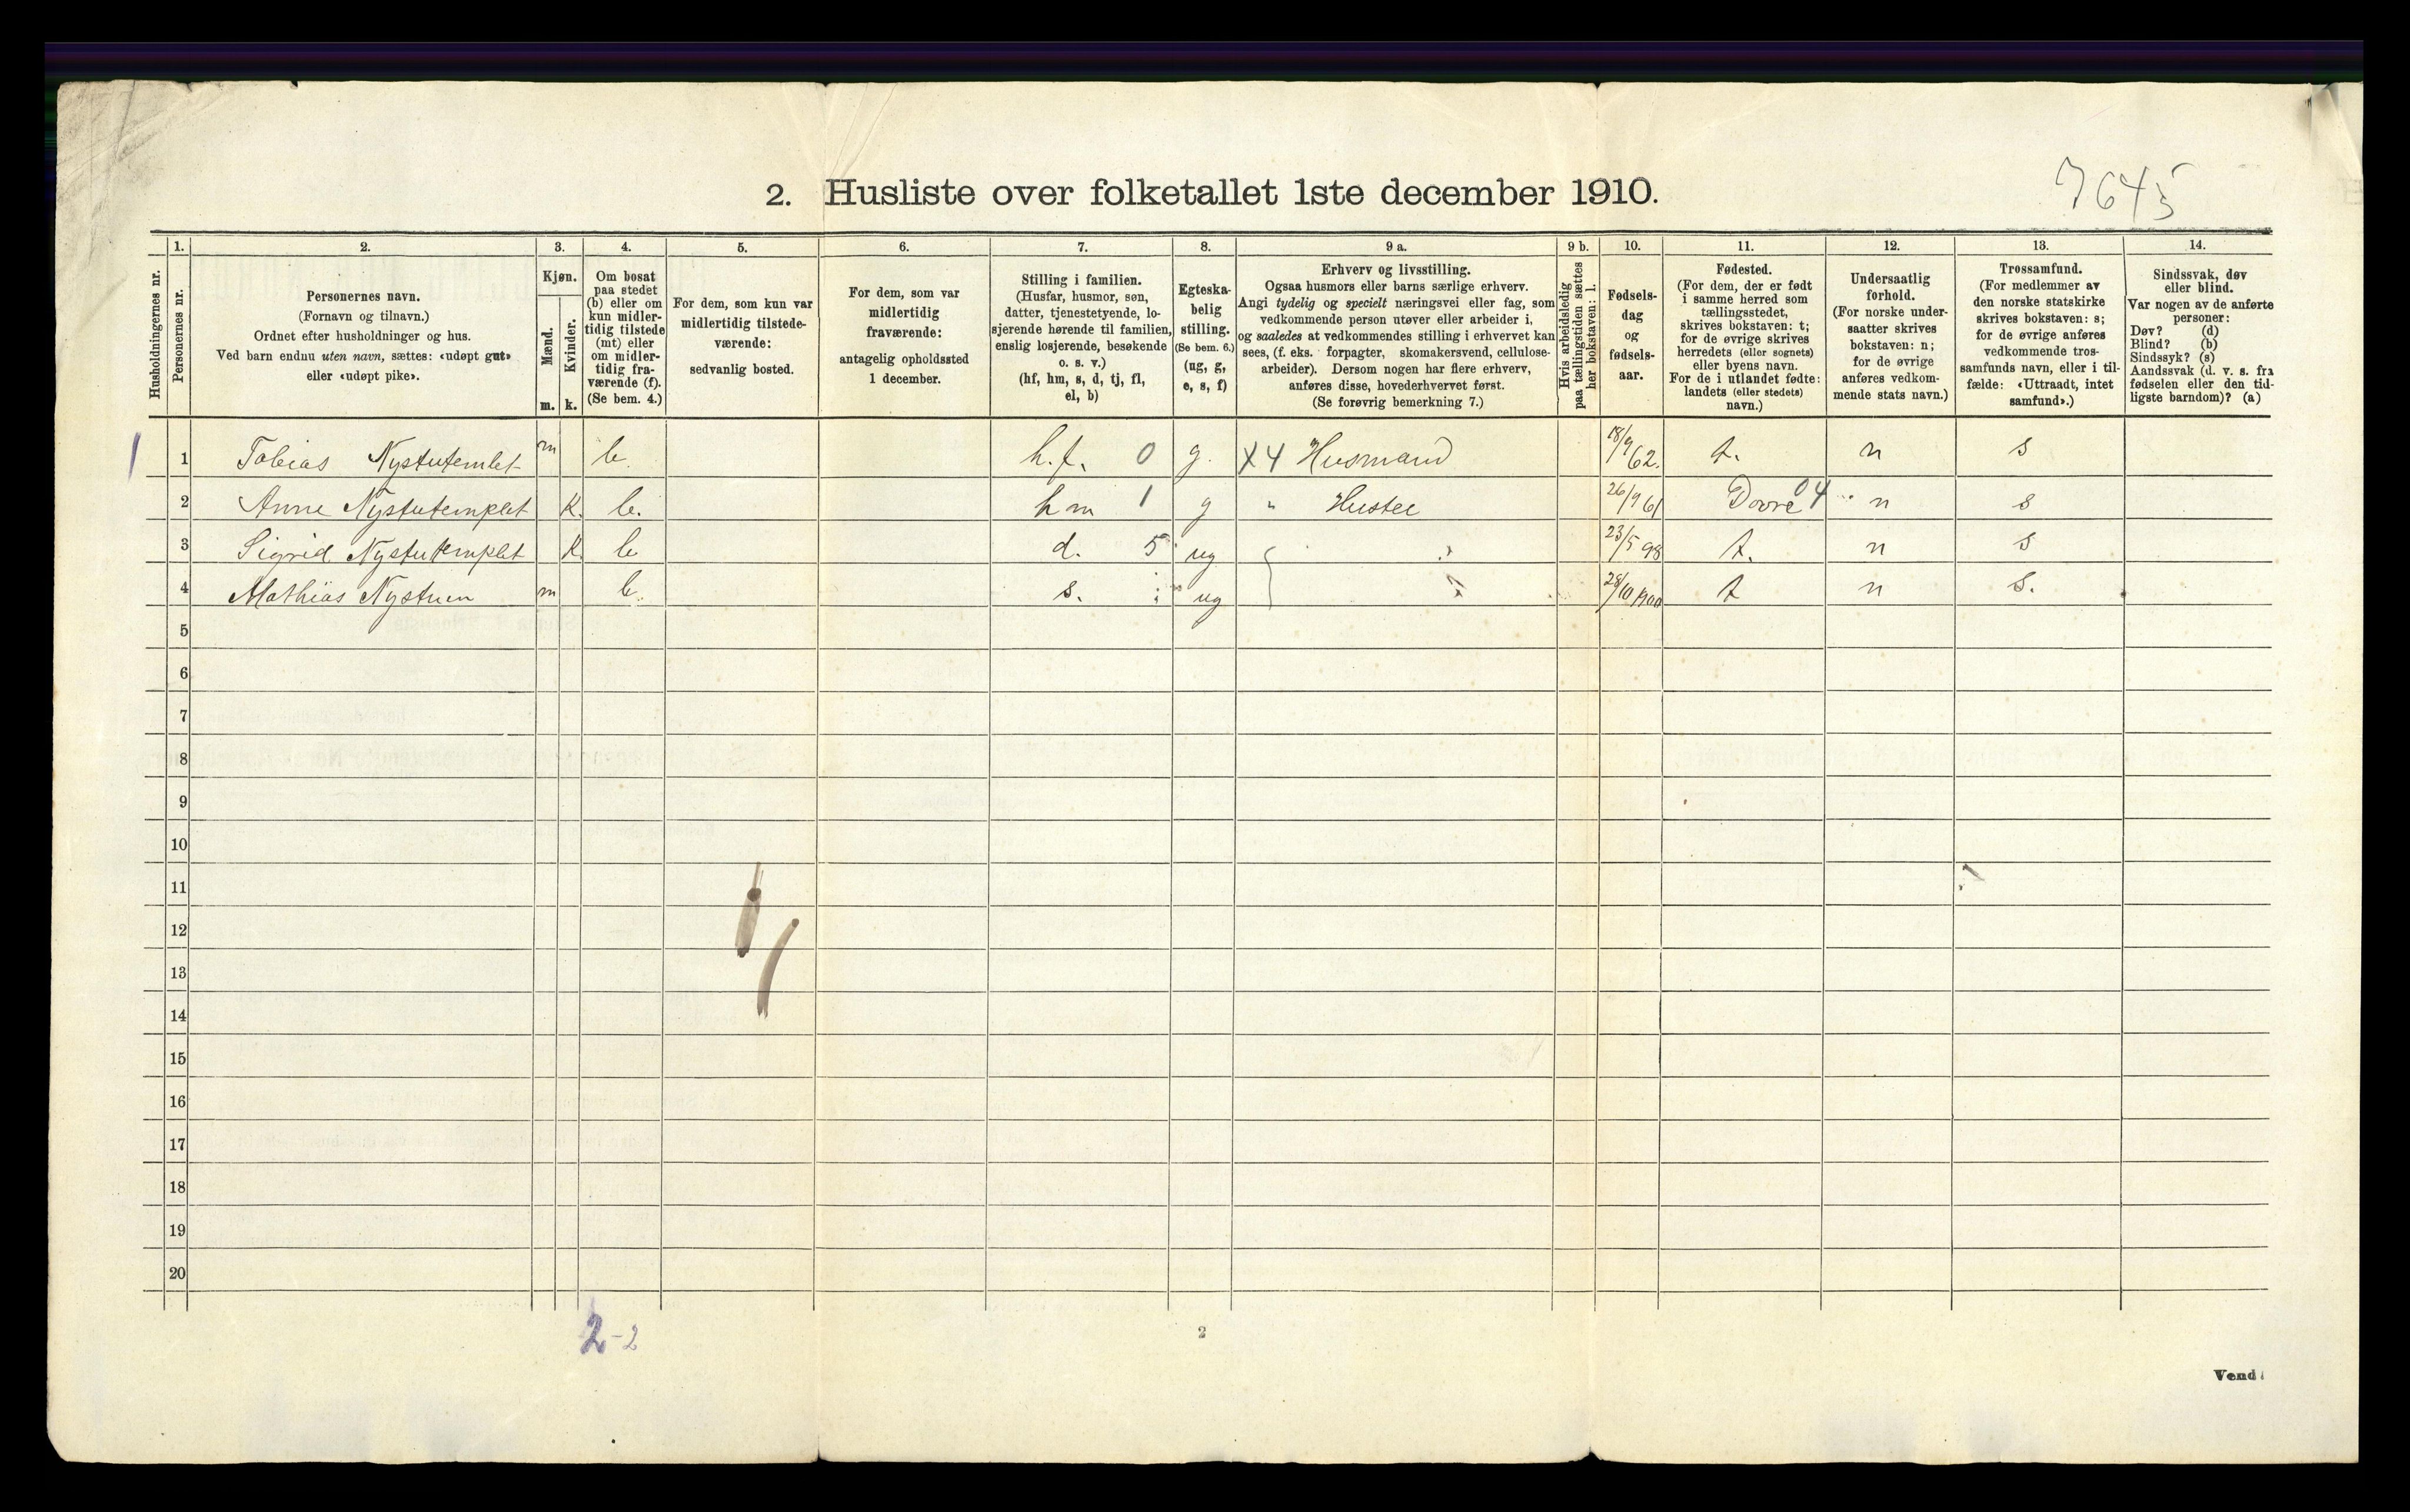 7645
2. Husliste over folketallet 1ste december 1910.
1. 2. 3. 4. 5. 6. 7. 8. 9 a. 9 b. 10. 11. 12. 13. 14.
Husholdningernes nr.
Personernes nr.
Personernes navn.
(Fornavn og tilnavn.)
Ordnet efter husholdninger og hus.
Ved barn endnu uten navn, sættes: «udøpt gut»
eller «udøpt pike».
Kjøn.
Mænd.
Kvinder.
m. k.
Om bosat
paa stedet
(b) eller om
kun midler-
tidig tilstede
(mt) eller
om midler-
tidig fra-
værende (f).
(Se bem. 4.)
For dem, som kun var
midlertidig tilstede-
værende:
sedvanlig bosted.
For dem, som var
midlertidig
fraværende:
antagelig opholdssted
1 december.
Stilling i familien.
(Husfar, husmor, søn,
datter, tjenestetyende, lo-
sjerende hørende til familien,
enslig losjerende, besøkende
o. s. v.)
(hf, hm, s, d, tj, fl,
el, b)
Egteska-
belig
stilling.
(Se bem. 6.)
(ug, g,
e, s, f)
Erhverv og livsstilling.
Ogsaa husmors eller barns særlige erhverv.
Angi tydelig og specielt næringsvei eller fag, som
vedkommende person utøver eller arbeider i,
og saaledes at vedkommendes stilling i erhvervet kan
sees, (f. eks. forpagter, skomakersvend, cellulose-
arbeider). Dersom nogen har flere erhverv,
anføres disse, hovederhvervet først.
(Se forøvrig bemerkning 7.)
Hvis arbeidsledig
paa tællingstiden sættes
her bokstaven: l.
Fødsels-
dag
og
fødsels-
aar.
Fødested.
(For dem, der er født
i samme herred som
tællingsstedet,
skrives bokstaven: t;
for de øvrige skrives
herredets (eller sognets)
eller byens navn.
For de i utlandet fødte:
landets (eller stedets)
navn.)
Undersaatlig
forhold.
(For norske under-
saatter skrives
bokstaven: n;
for de øvrige
anføres vedkom-
mende stats navn.)
Trossamfund.
(For medlemmer av
den norske statskirke
skrives bokstaven: s;
for de øvrige anføres
vedkommende tros-
samfunds navn, eller i til-
fælde: «Uttraadt, intet
samfund».)
Sindssvak, døv
eller blind.
Var nogen av de anførte
personer:
Døv? (d)
Blind? (b)
Sindssyk? (s)
Aandssvak (d. v. s. fra
fødselen eller den tid-
ligste barndom)? (a)
1 1 Tobias Nystutemlet m b. h.f. 0 g. X4 Husmand 18/9 62. t. n s
2 Anne Nystutemplet k. b. hm 1 g " Hustee 26/9 61 Dovre 04 n s
3 Sigrid Nystutemplet k. b d. 5 ug 23/5 98 t. n s
4 Mathias Nystuen m b. s. ug 28/10 1900 t n s.
5
6
7
8
9
10
11
12
13
14
15
16
17
18
19
20
2-2
2
Vend!